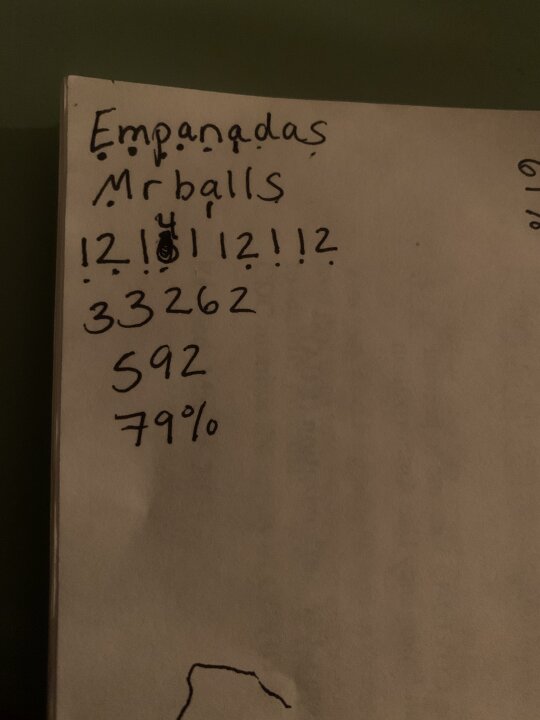 Empanadas
Mr balls
4
121 112112
33262
592
79%
61%